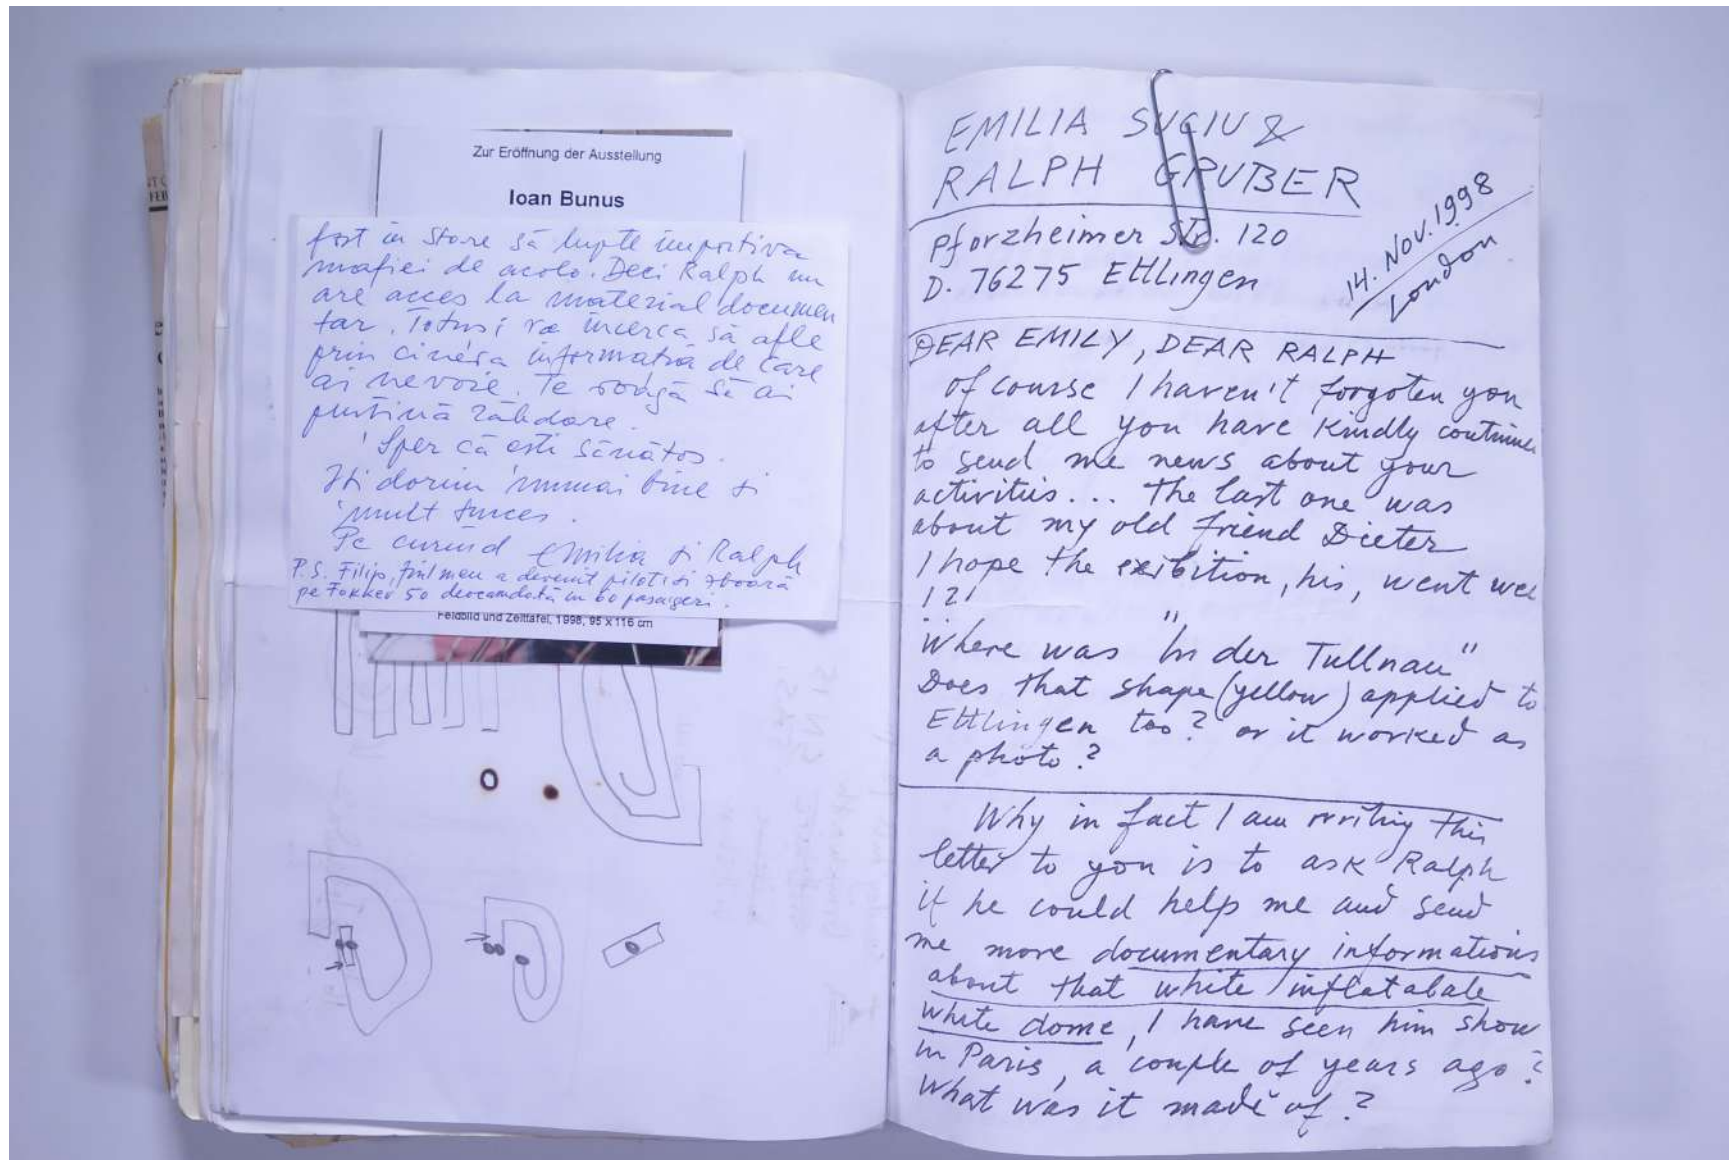 Zur Eröffnung der Ausstellung
Ioan Bunus
fost in stare să lupte impotriva
mafiei de acolo. Deci Ralph nu
are acces la material documen
tar. Totuși va incerca să afle
prin cineva informatia de care
ai nevoie. Te roagă să ai
puțină răbdare.
Sper că ești sănătos.
Iti dorim numai bine si
mult succes.
Pe curind Emilia si Ralph
P.S. Filip, finl meu a devenit pilot si zboară
pe Fokker 50 deocamdată cu 60 pasageri.
Feldbild und Zeittafel, 1998, 95 x 116 cm
EMILIA SUCIU &
RALPH GRUBER
Pforzheimer Str. 120
D. 76275 Ettlingen
14. Nov. 1998
London
DEAR EMILY, DEAR RALPH
of course I haven't forgoten you
after all you have kindly continue
to send me news about your
activities... The last one was
about my old friend Dieter
I hope the exibition, his, went wel
!?!
Where was "In der Tullnau"
Does that shape (yellow) applied to
Ettlingen too? or it worked as
a photo?
Why in fact I am writing this
letter to you is to ask Ralph
if he could help me and send
me more documentary informations
about that white inflatabale
white dome, I have seen him show
in Paris, a couple of years ago?
What was it made of?